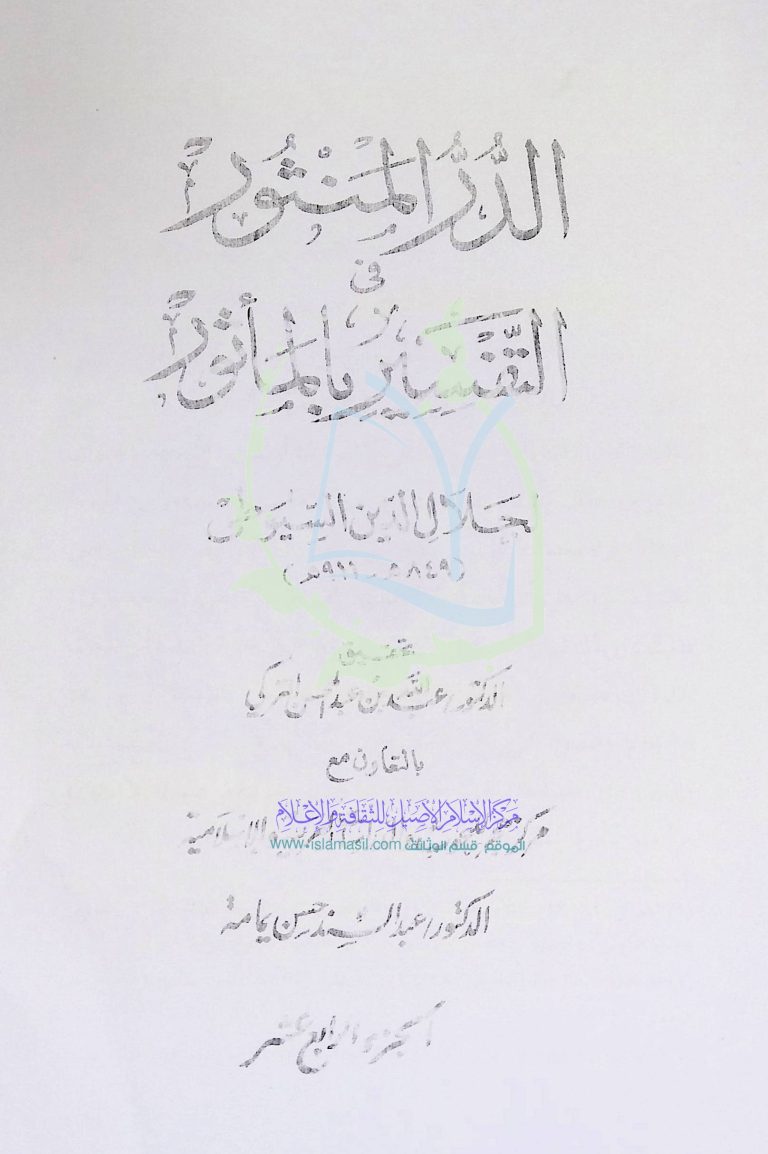 الدُّرُّ المَنْثُورْ
في
التَّفْسِيرِ بِالمَأثُورْ
لجَلَالِ الدِّينِ السِّيُوطِيّ
(٨٤٩هـ - ٩١١هـ)
تحقيق
الدكتور/ عبد الله بن عبد المحسن التركي
بالتعاون مع
مركز الإسلام الأصيل للثقافة والإعلام
مركز والإسلامية
الموقع قسم الوثائق www.islamasil.com
الدكتور/ عبد السند حسن يمامة
الجزء الرابع عشر